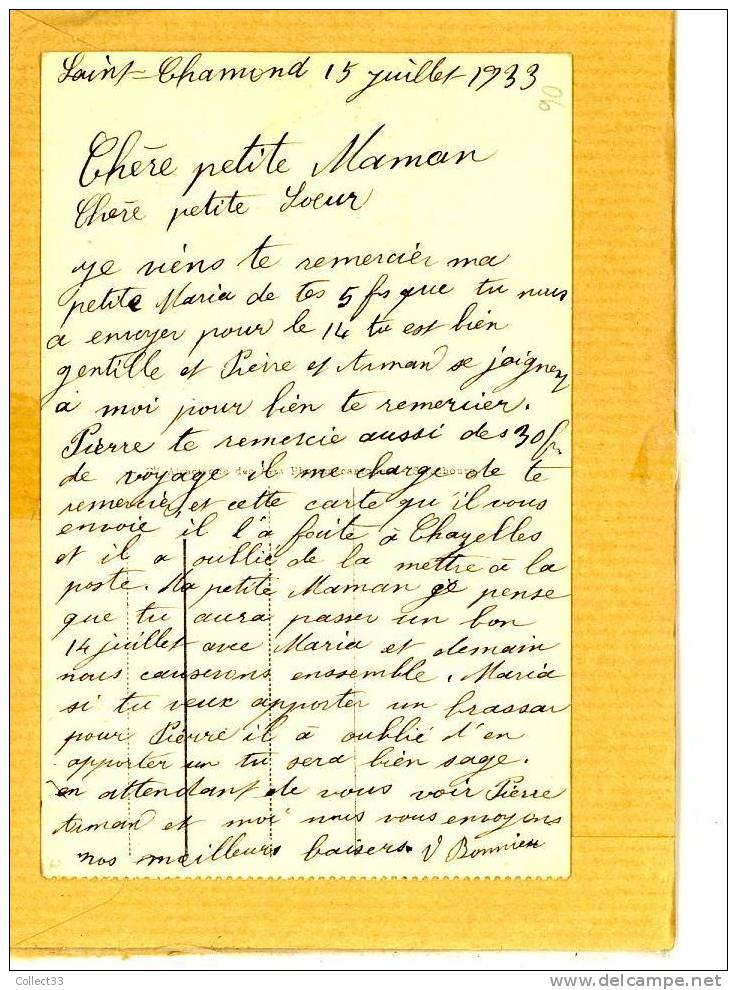 Saint-Chamond 15 juillet 1933
90
Chère petite Maman
Chère petite Soeur
je viens te remercier ma
petite Maria de tes 5 frs que tu nous
a envoyer pour le 14 tu est bien
gentille et Pierre et Arman se joignez
à moi pour bien te remercier.
Pierre te remercie aussi des 30 frs
de voyage il me charge de te
remercier et cette carte qu'il vous
envoie il l'a faite à Chazelles
et il a oublié de la mettre à la
poste. Ma petite Maman je pense
que tu aura passer un bon
14 juillet avec Maria et demain
nous causerons enssemble. Maria
si tu veux apporter un brassar
pour Pierre il à oublié d'en
apporter un tu sera bien sage.
en attendant de vous voir Pierre
Arman et moi nous vous envoyons
nos meilleurs baisers. V Bonnien
Collect33
© delcampe.net